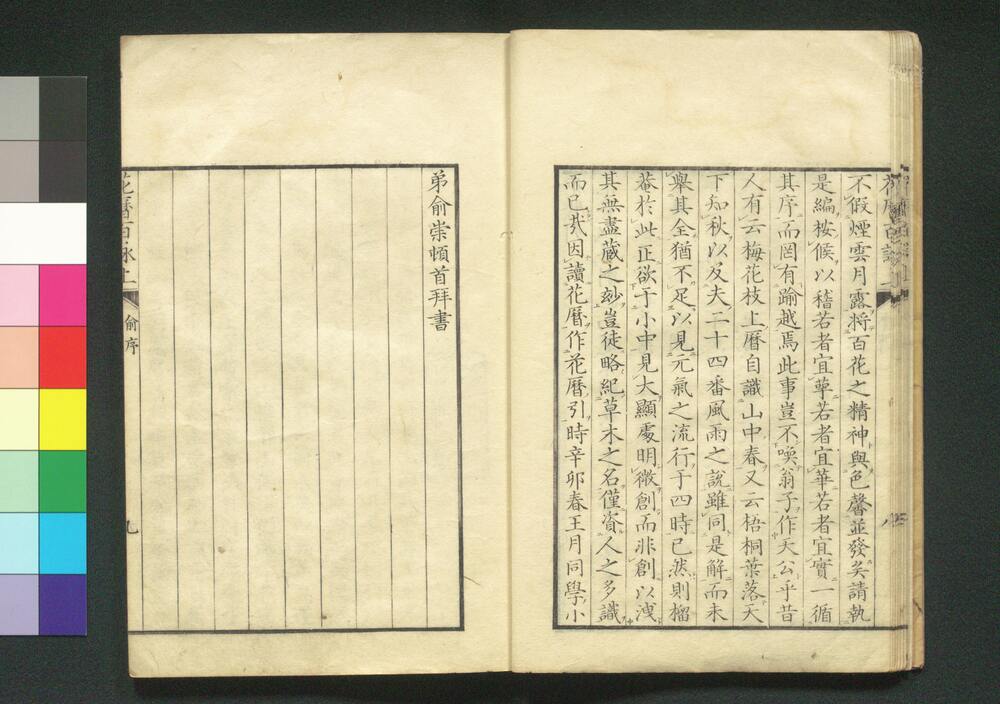 不假煙雲月露将百花之精神與色馨並發矣請執
是編按候以稽若者宜華若者宜實一循
其序而罔有踰越焉此事豈不喚翁子作天公乎昔
人有云梅花枝上曆自識山中春又云梧桐葉落天
下知秋以及夫二十四番風雨之說雖同是解而未
舉其全猶不足以見元氣之流行于四時已然則榴
菴於此正欲于小中見大顯處明微創而非創以洩
其無盡蔵之玅豈徒略紀草木之名僅資人之多識
而已㢤因讀花曆作花曆引時辛卯春王月同學小
弟俞崇頓首拜書
花曆百詠上
俞序
九